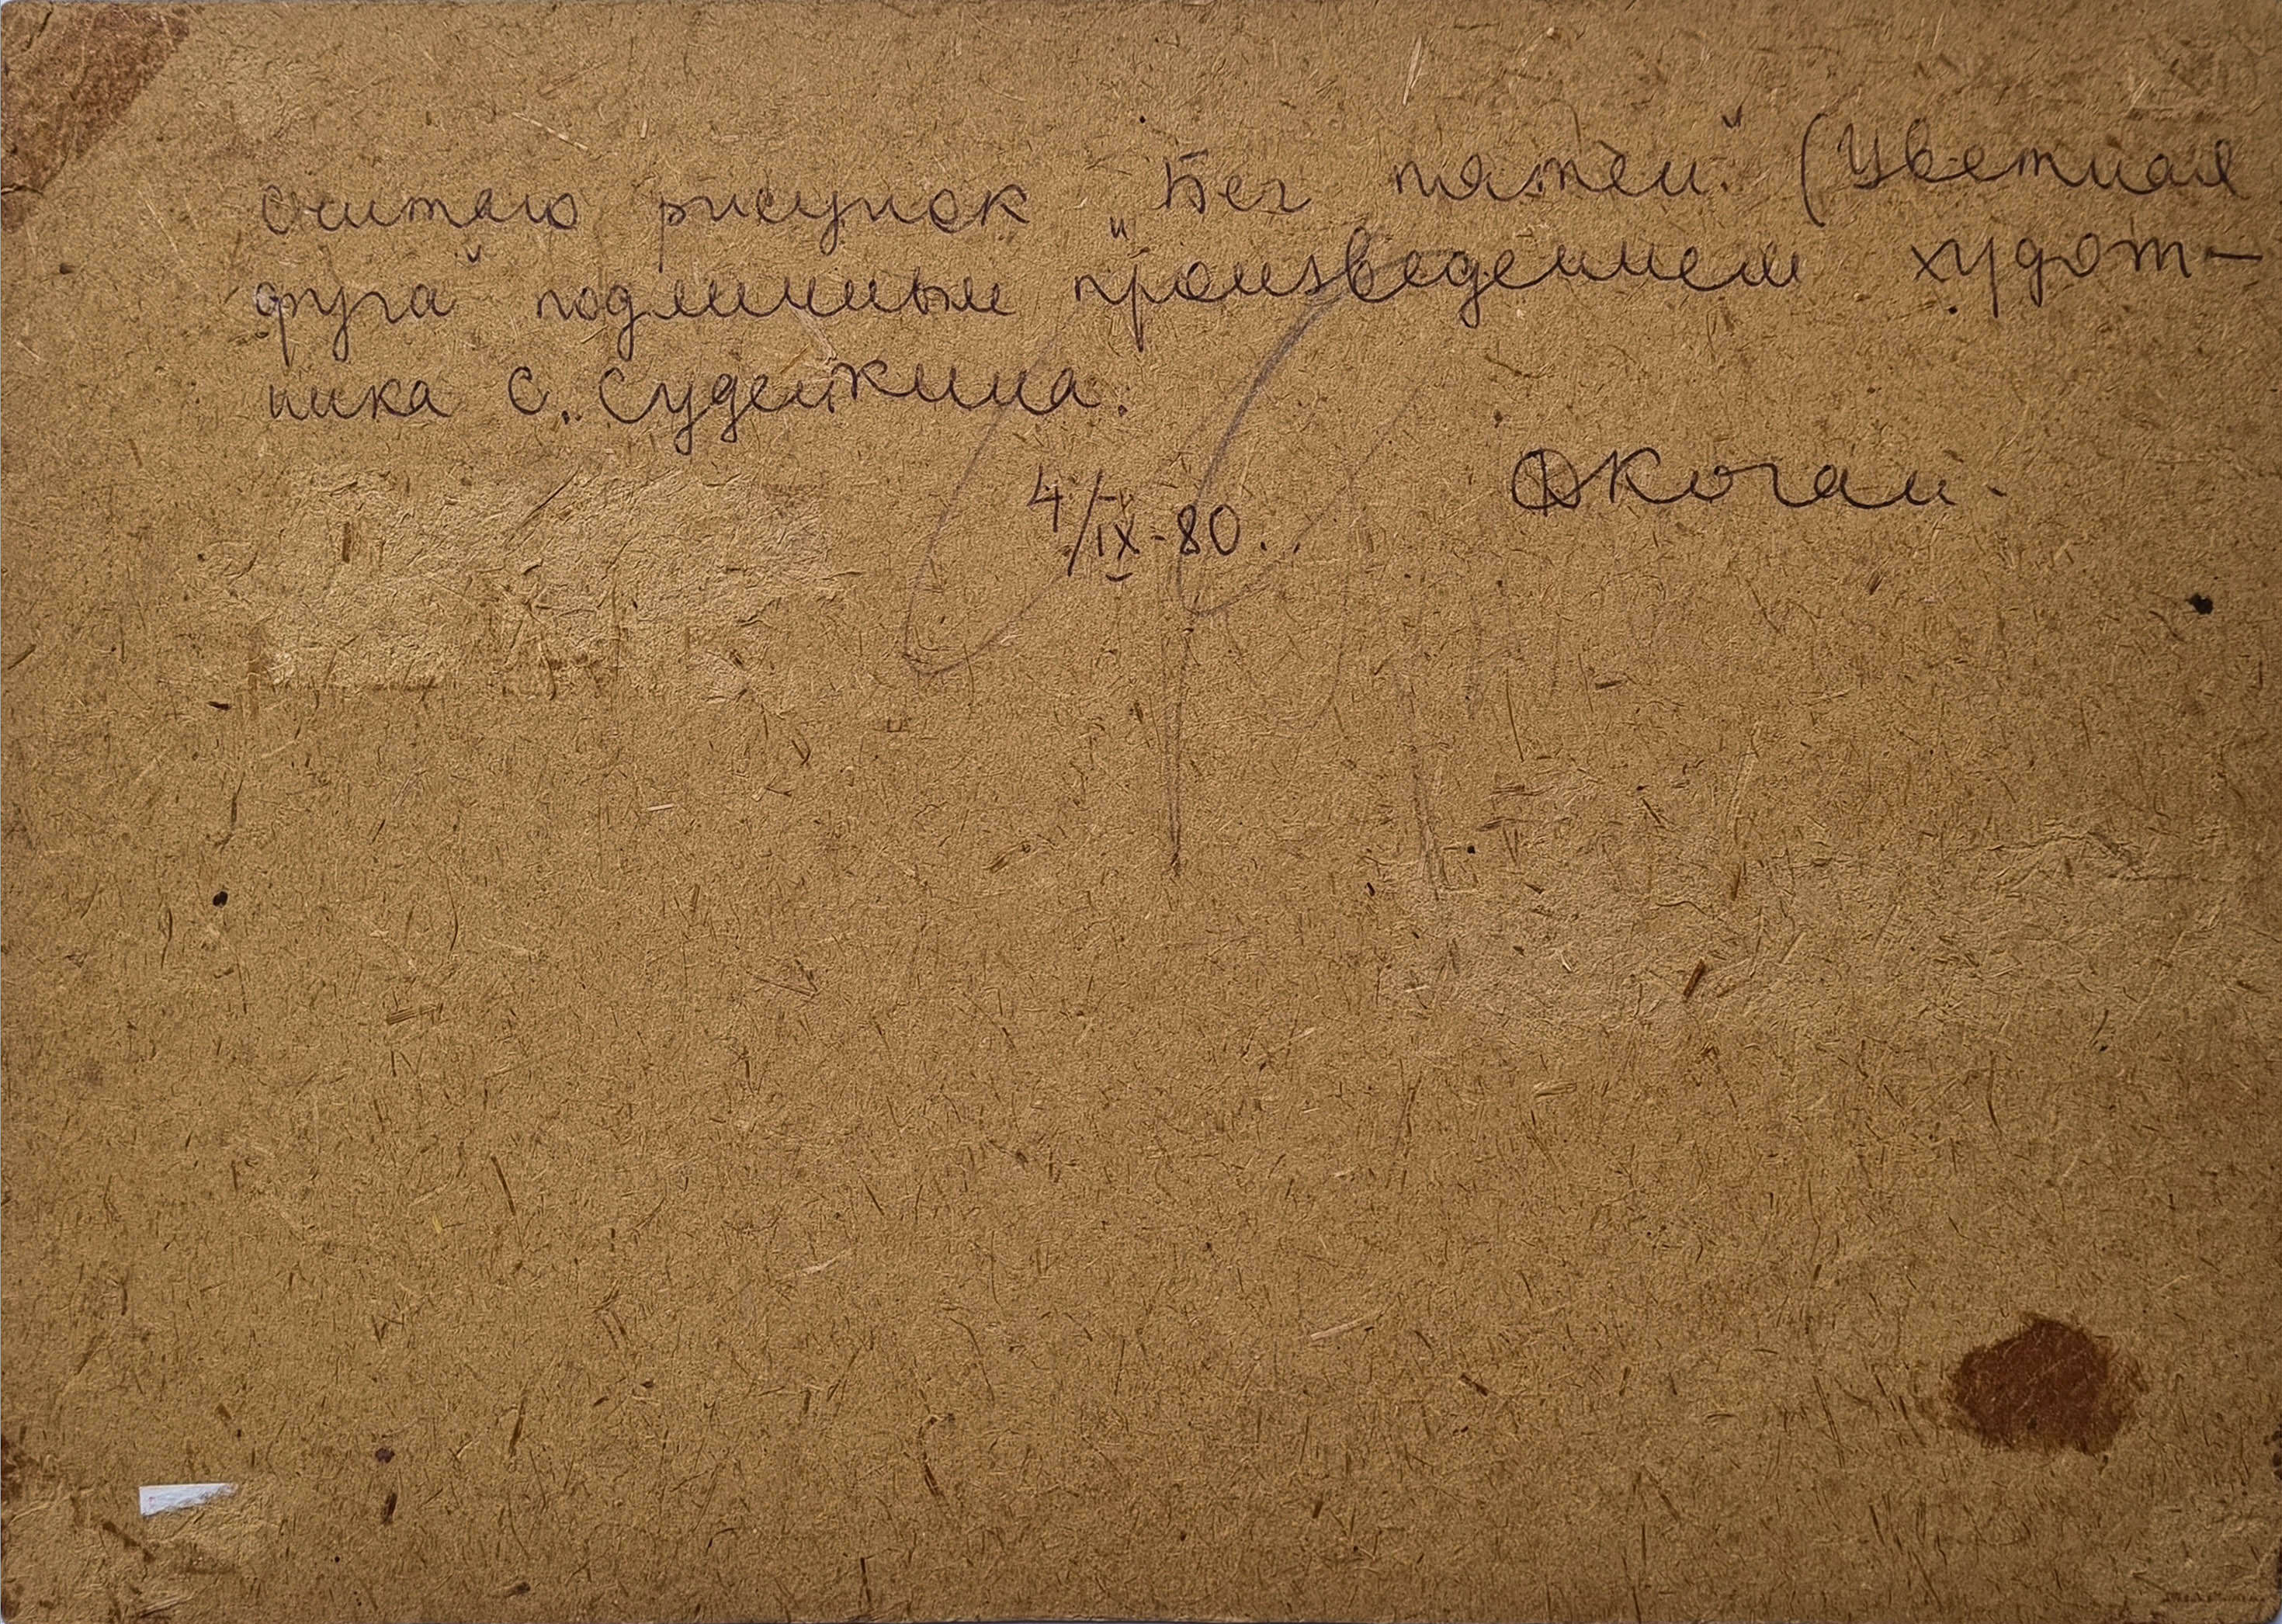 считаю рисунок „Бег пятен" (Цветная
фуга" подлинным произведением худож-
ника С. Судейкина.
ДКоган.
4/IX-80.